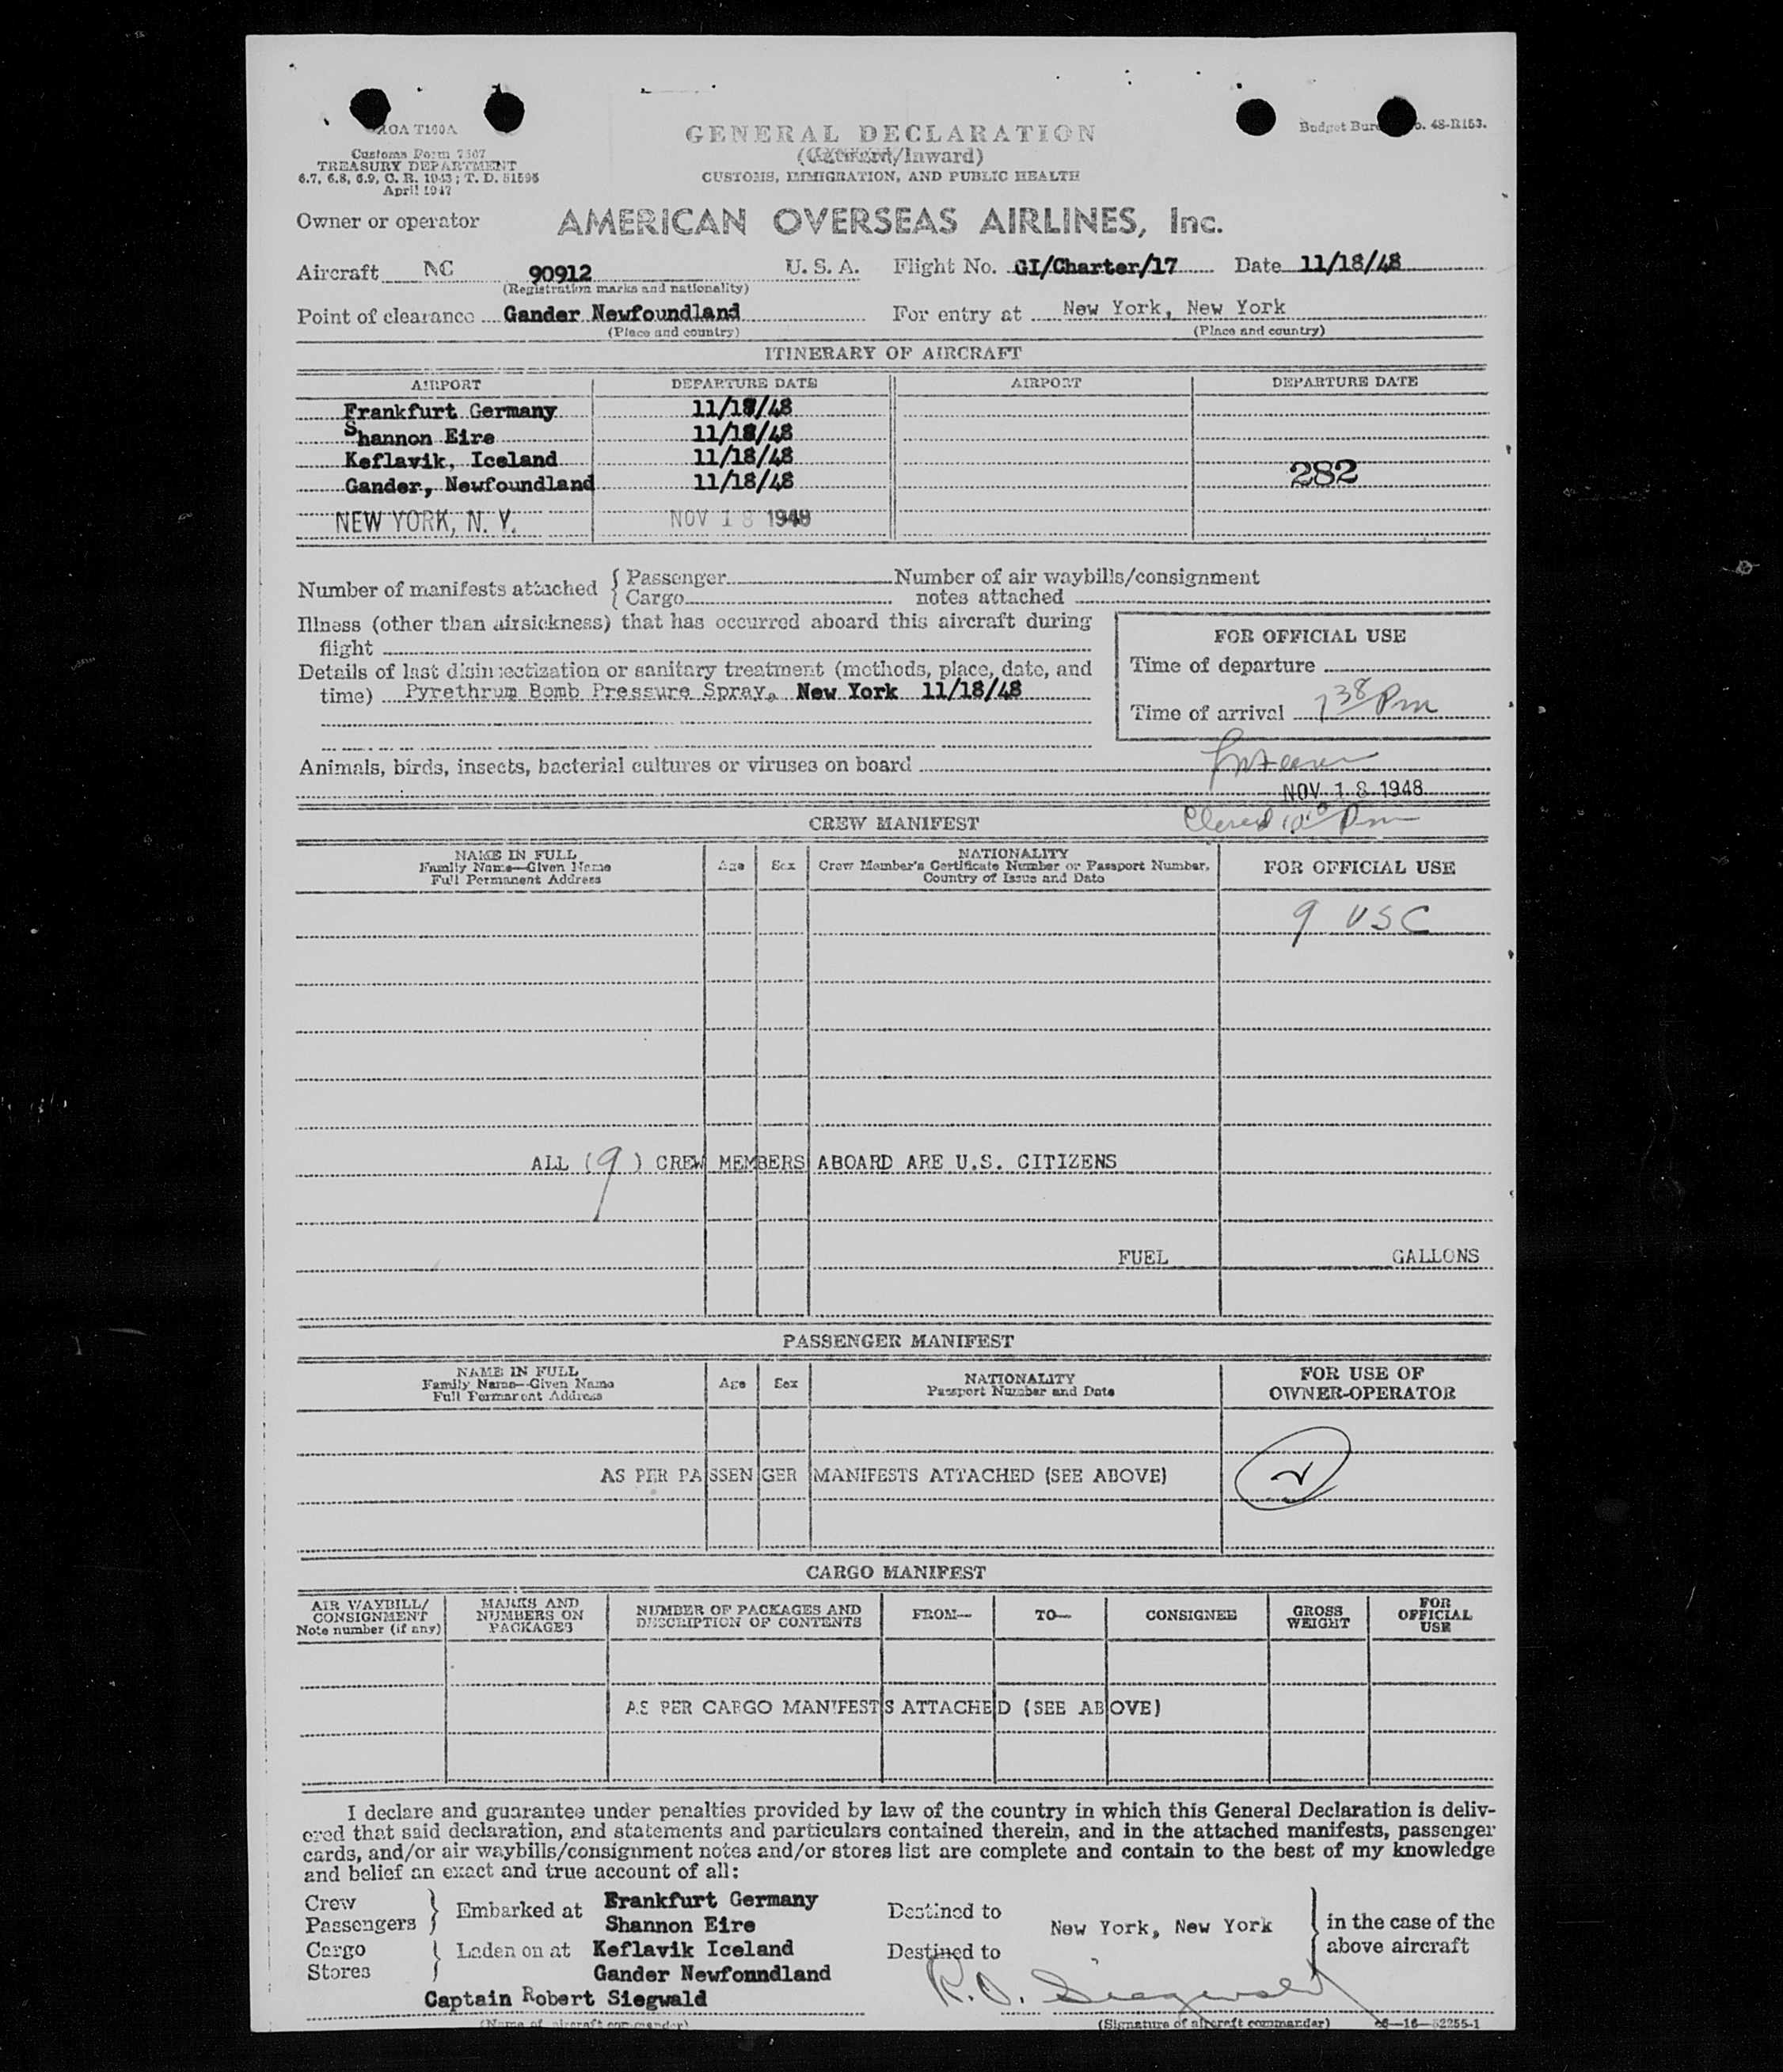 AOA T100A
Budget Bureau No. 48-R153.
GENERAL DECLARATION
(Outward/Inward)
CUSTOMS, IMMIGRATION, AND PUBLIC HEALTH
Customs Form 7507
TREASURY DEPARTMENT
6.7, 6.8, 6.9, C. R. 1943; T. D. 51595
April 1947
Owner or operator AMERICAN OVERSEAS AIRLINES, Inc.
Aircraft NC 90912 U. S. A. Flight No. GI/Charter/17 Date 11/18/48
(Registration marks and nationality)
Point of clearance Gander Newfoundland For entry at New York, New York
(Place and country) (Place and country)
ITINERARY OF AIRCRAFT
AIRPORT DEPARTURE DATE AIRPORT DEPARTURE DATE
Frankfurt Germany 11/18/48
Shannon Eire 11/18/48
Keflavik, Iceland 11/18/48
282
Gander, Newfoundland 11/18/48
NEW YORK, N. Y. NOV 18 1948
Number of manifests attached { Passenger Number of air waybills/consignment
{ Cargo notes attached
Illness (other than airsickness) that has occurred aboard this aircraft during
flight
FOR OFFICIAL USE
Details of last disinsectization or sanitary treatment (methods, place, date, and
time) Pyrethrum Bomb Pressure Spray, New York 11/18/48
Time of departure
Time of arrival 7 38 Pm
Animals, birds, insects, bacterial cultures or viruses on board
NOV 18 1948
CREW MANIFEST
NAME IN FULL
Family Name—Given Name
Full Permanent Address
Age Sex
NATIONALITY
Crew Member's Certificate Number or Passport Number,
Country of Issue and Date
FOR OFFICIAL USE
9 USC
ALL (9) CREW MEMBERS ABOARD ARE U.S. CITIZENS
FUEL GALLONS
PASSENGER MANIFEST
NAME IN FULL
Family Name—Given Name
Full Permanent Address
Age Sex
NATIONALITY
Passport Number and Date
FOR USE OF
OWNER-OPERATOR
AS PER PASSENGER MANIFESTS ATTACHED (SEE ABOVE)
CARGO MANIFEST
AIR WAYBILL/
CONSIGNMENT
Note number (if any)
MARKS AND
NUMBERS ON
PACKAGES
NUMBER OF PACKAGES AND
DESCRIPTION OF CONTENTS
FROM—
TO—
CONSIGNEE
GROSS
WEIGHT
FOR
OFFICIAL
USE
AS PER CARGO MANIFESTS ATTACHED (SEE ABOVE)
I declare and guarantee under penalties provided by law of the country in which this General Declaration is deliv-
ered that said declaration, and statements and particulars contained therein, and in the attached manifests, passenger
cards, and/or air waybills/consignment notes and/or stores list are complete and contain to the best of my knowledge
and belief an exact and true account of all:
Crew
Passengers } Embarked at Frankfurt Germany
Shannon Eire
Destined to
New York, New York
Cargo
Stores } Laden on at Keflavik Iceland
Gander Newfonndland
Destined to
in the case of the
above aircraft
Captain Robert Siegwald
R. O. Siegwald
(Name of aircraft commander) (Signature of aircraft commander) 16—52255-1